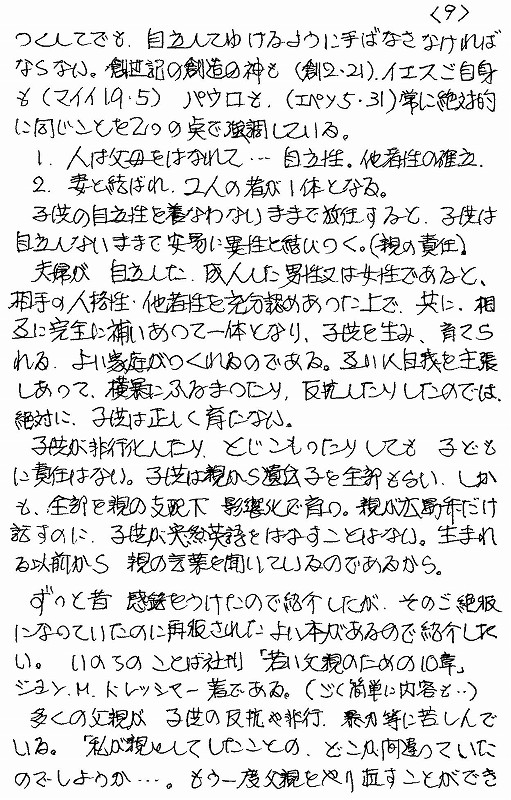 〈9〉
つくしてでも、自立してゆけるように手ばなさなければ
ならない。創世記の創造の神も(創2・21)、イエスご自身
も(マイイ19・5) パウロも、(エペソ5・31)常に絶対的
に同じことを2つの点で強調している。
1. 人は父母をはなれて… 自立性。他者性の確立、
2. 妻と結ばれ、2人の者が1体となる。
子供の自立性を養なわないままで放任すると、子供は
自立しないままで安易に異性と結びつく。(親の責任)
夫婦が 自立した、成人した男性又は女性であると、
相手の人格性・他者性を充分認めあった上で、共に、相
互に完全に補いあって一体となり、子供を生み、育てら
れる、よい家庭がつくれるのである。互いに自我を主張
しあって、横暴にふるまったり、反抗したりしたのでは、
絶対に、子供は正しく育たない。
子供が非行化したり、とじこもったりしても 子ども
に責任はない。子供は親から遺伝子を全部もらい、しか
も、全部を親の支配下 影響化で育つ。親が広島弁だけ
話すのに、子供が突然英語をはなすことはない。生まれ
る以前から 親の言葉を聞いているのであるから。
ずっと昔 感銘をうけたので紹介したが、そのご絶版
になっていたのに再版されたよい本があるので紹介した
い。 いのちのことば社刊「若い父親のための10章」
ジョン、M. ドレッシャー著である。(ごく簡単に内容を‥)
多くの父親が 子供の反抗や非行、暴力等に苦しんで
いる。「私が親としてしたことの、どこが間違っていた
のでしょうか…。もう一度父親をやり直すことができ